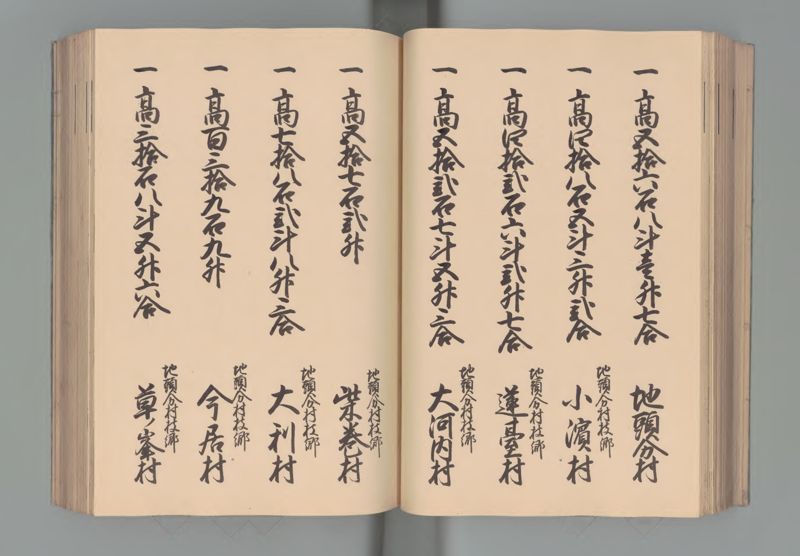 一 高五拾六石八斗壱升七合 地頭分村
一 高四拾八石五斗三升弐合 地頭分村枝郷 小濱村
一 高四拾弐石六斗弐升七合 地頭分村枝郷 蓮臺村
一 高五拾弐石七斗五升三合 地頭分村枝郷 大河内村
一 高五拾七石弐升 地頭分村枝郷 柴巻村
一 高七拾八石弐斗八升三合 地頭分村枝郷 大利村
一 高百三拾九石九升 地頭分村枝郷 今居村
一 高三拾石八斗五升六合 地頭分村枝郷 草ノ峯村